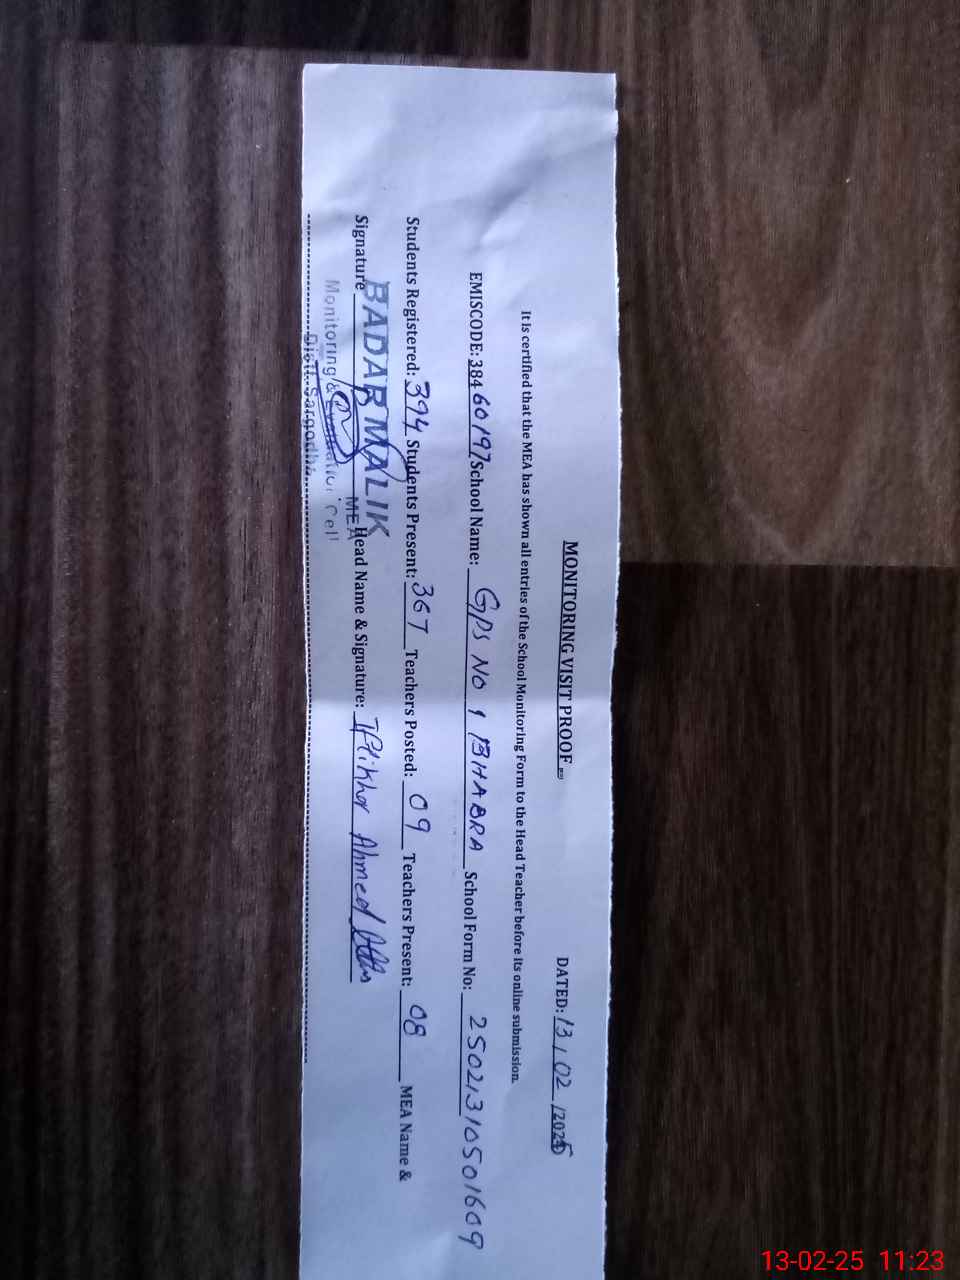 MONITORING VISIT PROOF
DATED: 13/02/2025
It is certified that the MEA has shown all entries of the School Monitoring Form to the Head Teacher before its online submission.
EMISCODE: 38460197 School Name: GPS NO 1 BHABRA School Form No: 25021310501609
Students Registered: 394 Students Present: 367 Teachers Posted: 09 Teachers Present: 08 MEA Name &
Signature Head Name & Signature: Iftikhar Ahmed
BADAR MALIK
MEA
Monitoring & Evaluation Cell
Distt. Sargodha
13-02-25 11:23